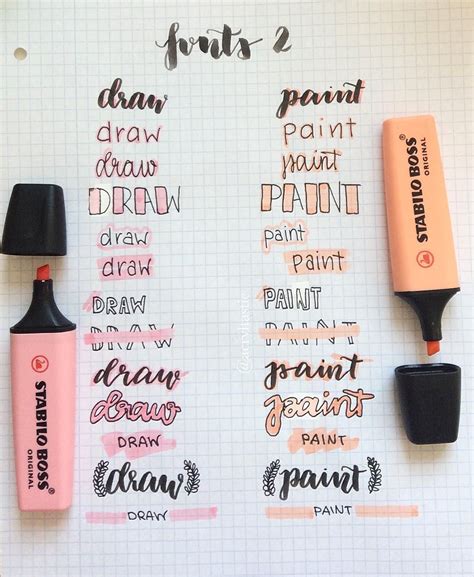 fonts 2
draw paint
draw paint
draw paint
DRAW PAINT
draw paint
draw paint
DRAW PAINT
DRAW PAINT
draw paint
draw paint
DRAW PAINT
draw paint
DRAW PAINT
STABILO BOSS
ORIGINAL
STABILO BOSS
ORIGINAL